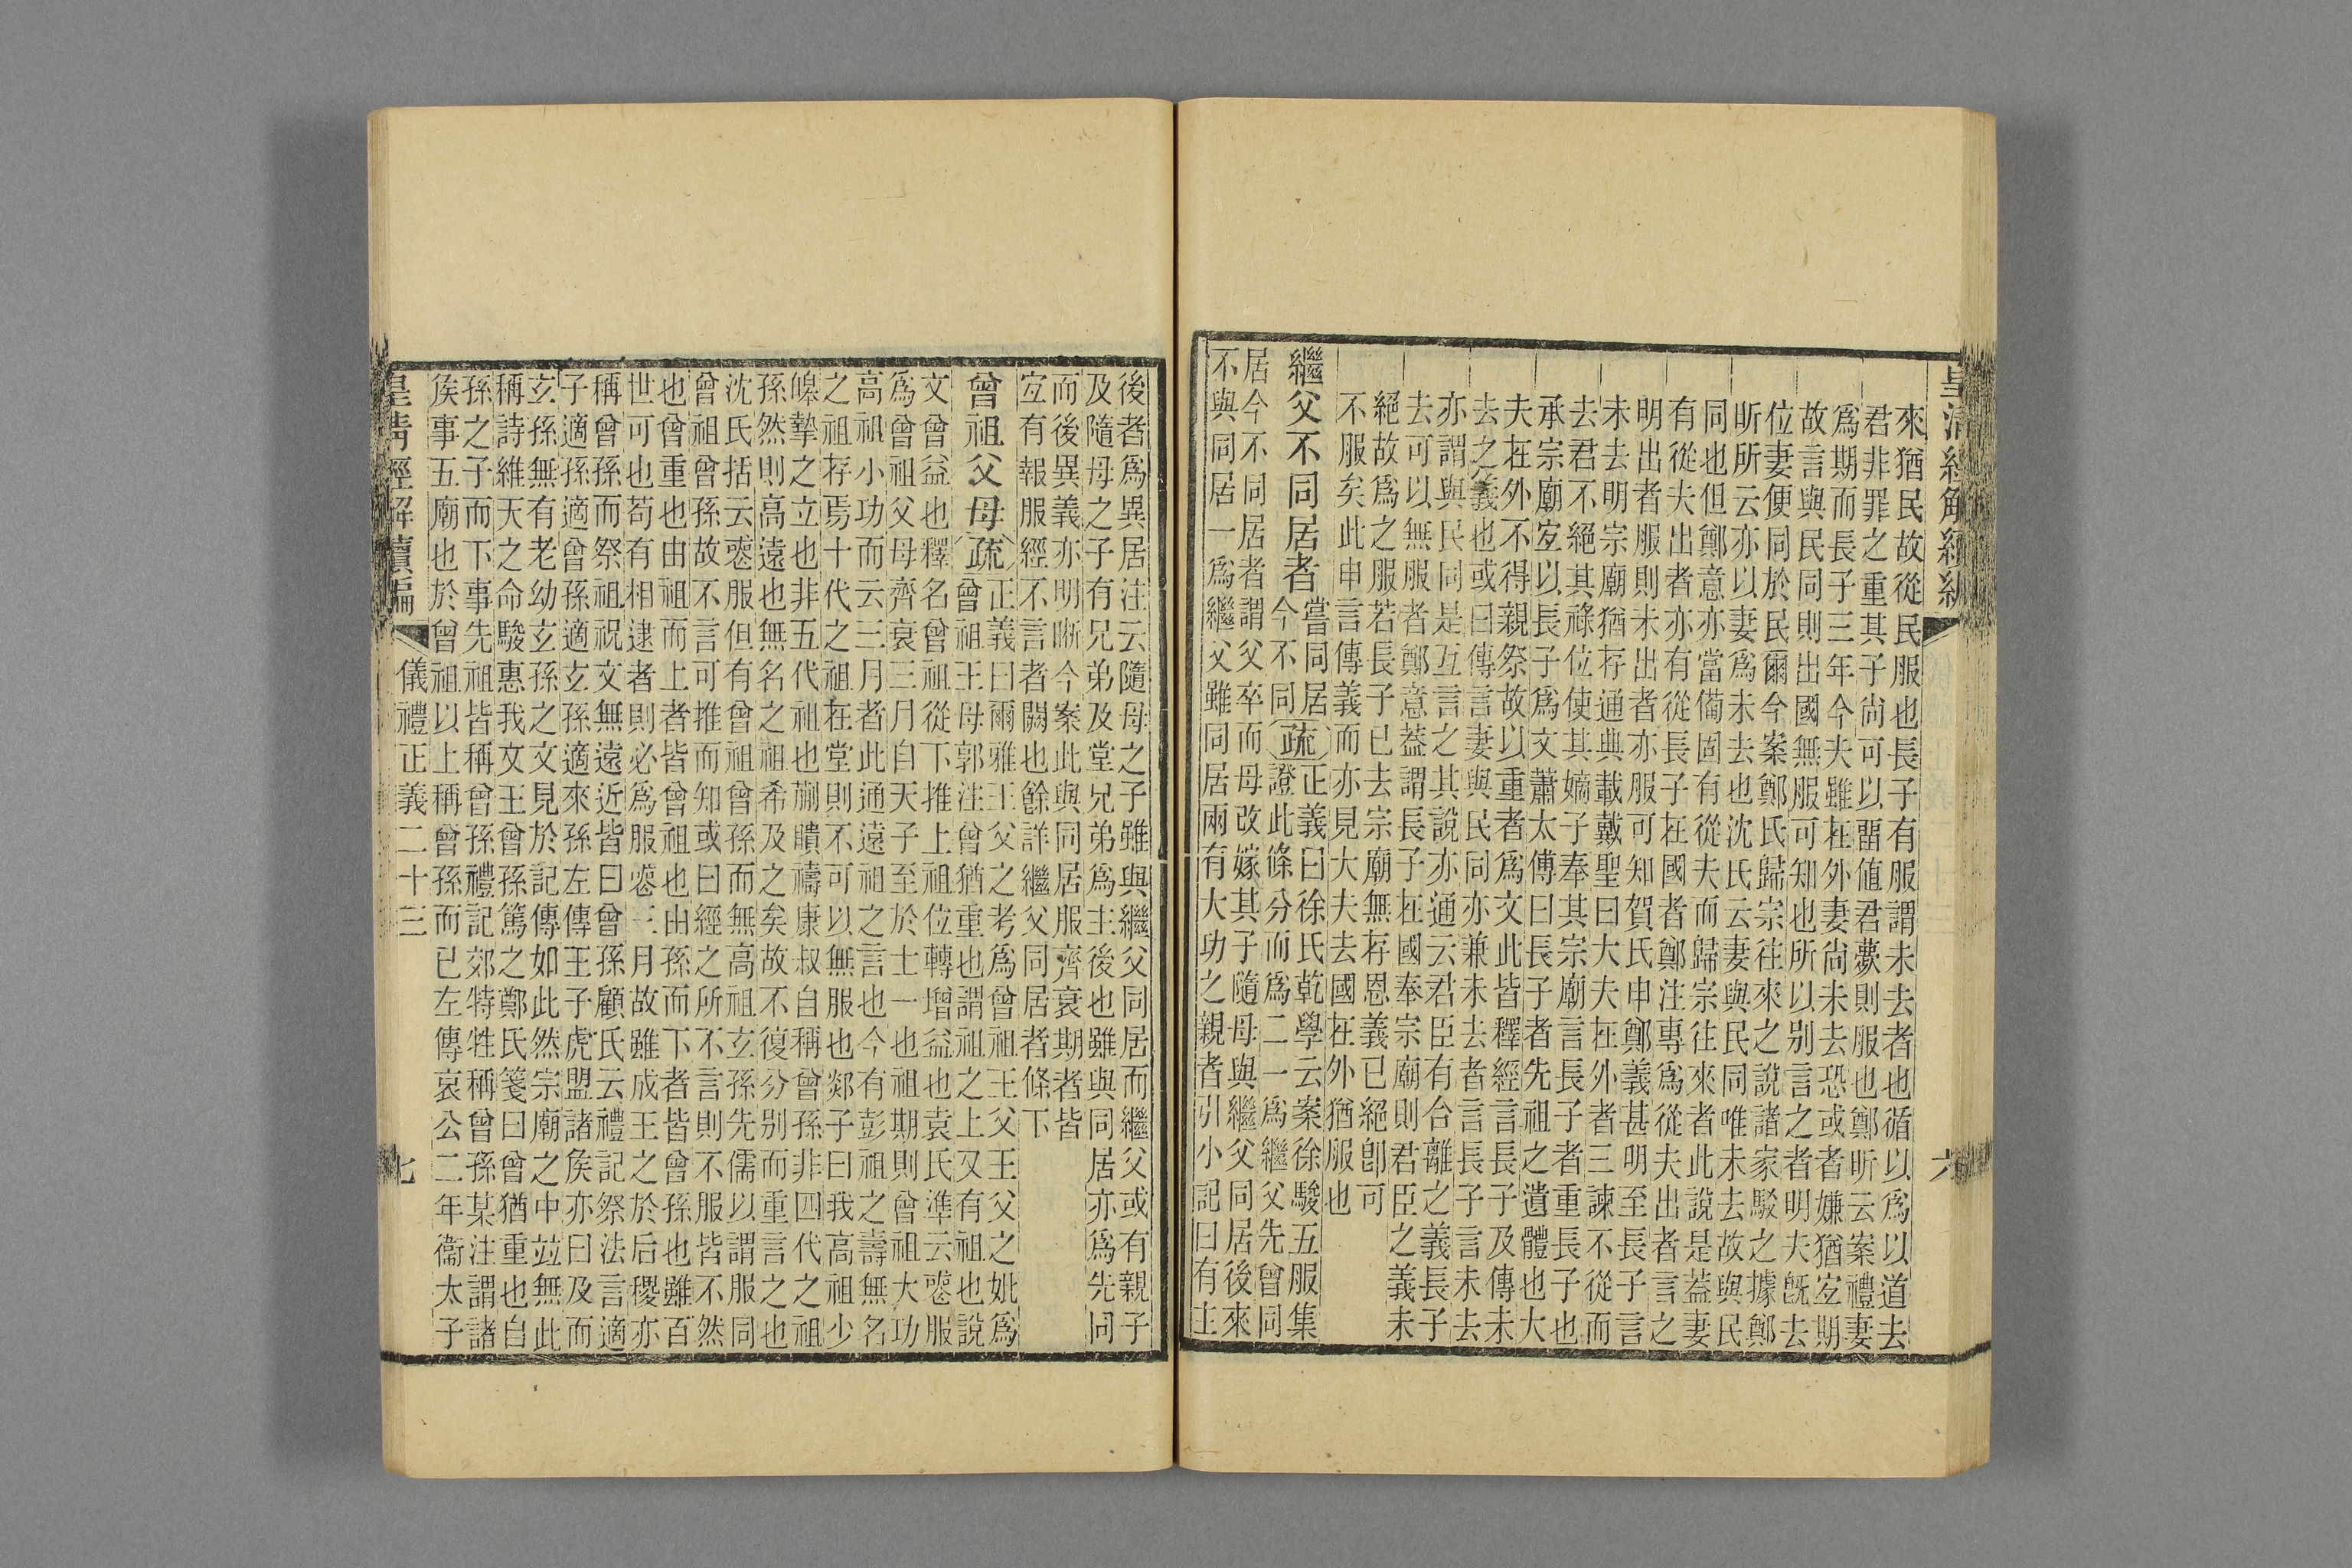 皇清經解續編
六
來猶民故從民服也長子有服謂未去者也循以爲以道去
君非罪之重其子尚可以畱值君薨則服也鄭昕云案禮妻
爲期而長子三年今夫雖在外妻尚未去恐或者嫌猶宐期
故言與民同則出國無服可知也所以别言之者明夫旣去
位妻便同於民爾今案鄭氏歸宗往來之說諸家駁之據鄭
昕所云亦以妻爲未去也沈氏云妻與民同唯未去故與民
同也但鄭意亦當備固有從夫而歸宗往來者此說是葢妻
有從夫出者亦有從長子在國者鄭注專爲從夫出者言之
明出者服則未出者亦服可知賀氏申鄭義甚明至長子言
未去明宗廟猶存通典載戴聖曰大夫在外者三諫不從而
去君不絕其祿位使其嫡子奉其宗廟言長子者重長子也
承宗廟宐以長子爲文蕭太傅曰長子者先祖之遺體也大
夫在外不得親祭故以重者爲文此皆釋經言長子及傳未
去之義也或曰傳言妻與民同亦兼未去者言長子言未去
亦謂與民同是互言之其說亦通云君臣有合離之義長子
去可以無服者鄭意葢謂長子在國奉宗廟則君臣之義未
絕故爲之服若長子已去宗廟無存恩義已絕卽可
不服矣此申言傳義而亦見大夫去國在外猶服也
繼父不同居者
嘗同居
今不同
疏
正義曰徐氏乾學云案徐駿五服集
證此條分而爲二一爲繼父先曾同
居今不同居者謂父卒而母改嫁其子隨母與繼父同居後來
不與同居一爲繼父雖同居兩有大功之親者引小記曰有主
後者爲異居注云隨母之子雖與繼父同居而繼父或有親子
及隨母之子有兄弟及堂兄弟爲主後也雖與同居亦爲先同
而後異義亦明晰今案此與同居服齊衰期者皆
宐有報服經不言者闕也餘詳繼父同居者條下
曾祖父母
疏
正義曰爾雅王父之考爲曾祖王父王父之妣爲
曾祖王母郭注曾猶重也謂祖之上又有祖也說
文曾益也釋名曾祖從下推上祖位轉增益也袁氏準云䘮服
爲曾祖父母齊衰三月自天子至於士一也祖期則曾祖大功
高祖小功而云三月者此通遠祖之言也今有彭祖之壽無名
之祖存焉十代之祖在堂則不可以無服也郯子曰我高祖少
皞摯之立也非五代祖也蒯聵禱康叔自稱曾孫非四代之祖
孫然則高遠也無名之祖希及之矣故不復分别而重言之也
沈氏括云䘮服但有曾祖曾孫而無高祖玄孫先儒以謂服同
曾祖曾孫故不言可推而知或曰經之所不言則不服皆不然
也曾重也由祖而上者皆曾祖也由孫而下者皆曾孫也雖百
世可也苟有相逮者則必爲服䘮三月故雖成王之於后稷亦
稱曾孫而祭祖祝文無遠近皆曰曾孫顧氏云禮記祭法言適
子適孫適曾孫適玄孫適來孫左傳王子虎盟諸侯亦曰及而
玄孫無有老幼玄孫之文見於記傳如此然宗廟之中竝無此
稱詩維天之命駿惠我文王曾孫篤之鄭氏箋曰曾猶重也自
孫之子而下事先祖皆稱曾孫禮記郊特牲稱曾孫某注謂諸
侯事五廟也於曾祖以上稱曾孫而已左傳哀公二年衞太子
皇清經解續編
儀禮正義二十三
七